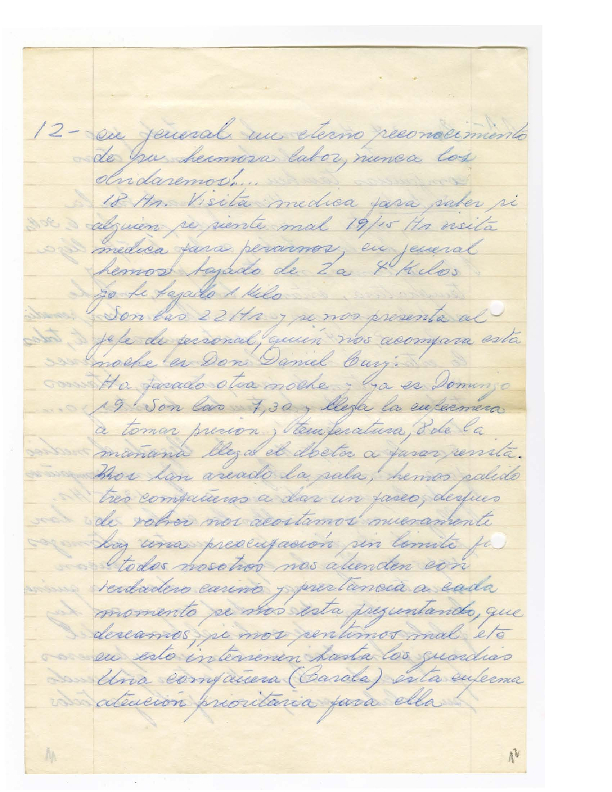 12- en jeneral un eterno reconocimiento
de su hermosa labor, nunca los
olvidaremos!....
18 Hr. Visita medica para saber si
alguien se siente mal 19/15 Hr visita
medica para pesarnos, en jeneral
hemos bajado de 2 a 4 Kilos
yo he bajado 1 Kilo
Son las 22 Hr y se nos presenta al
jefe de personal, quién nos acompara esta
noche es Don Daniel
Ha pasado otra noche y ya es Domingo
19 Son las 7,30 y llega la enfermera
a tomar presion y temperatura, 8 de la
mañana llega el doctor a pasar visita.
Nos han aseado la sala, hemos salido
tres compañeras a dar un paseo, despues
de volver nos acostamos nuevamente
hay una preocupación sin limite
todos nosotros nos atienden con
verdadero cariño y prestancia a cada
momento se nos esta preguntando, que
deseamos, si nos sentimos mal etc
en esto intervienen hasta los guardias
Una compañera (Carola) esta enferma
atención prioritaria para ella
11
12